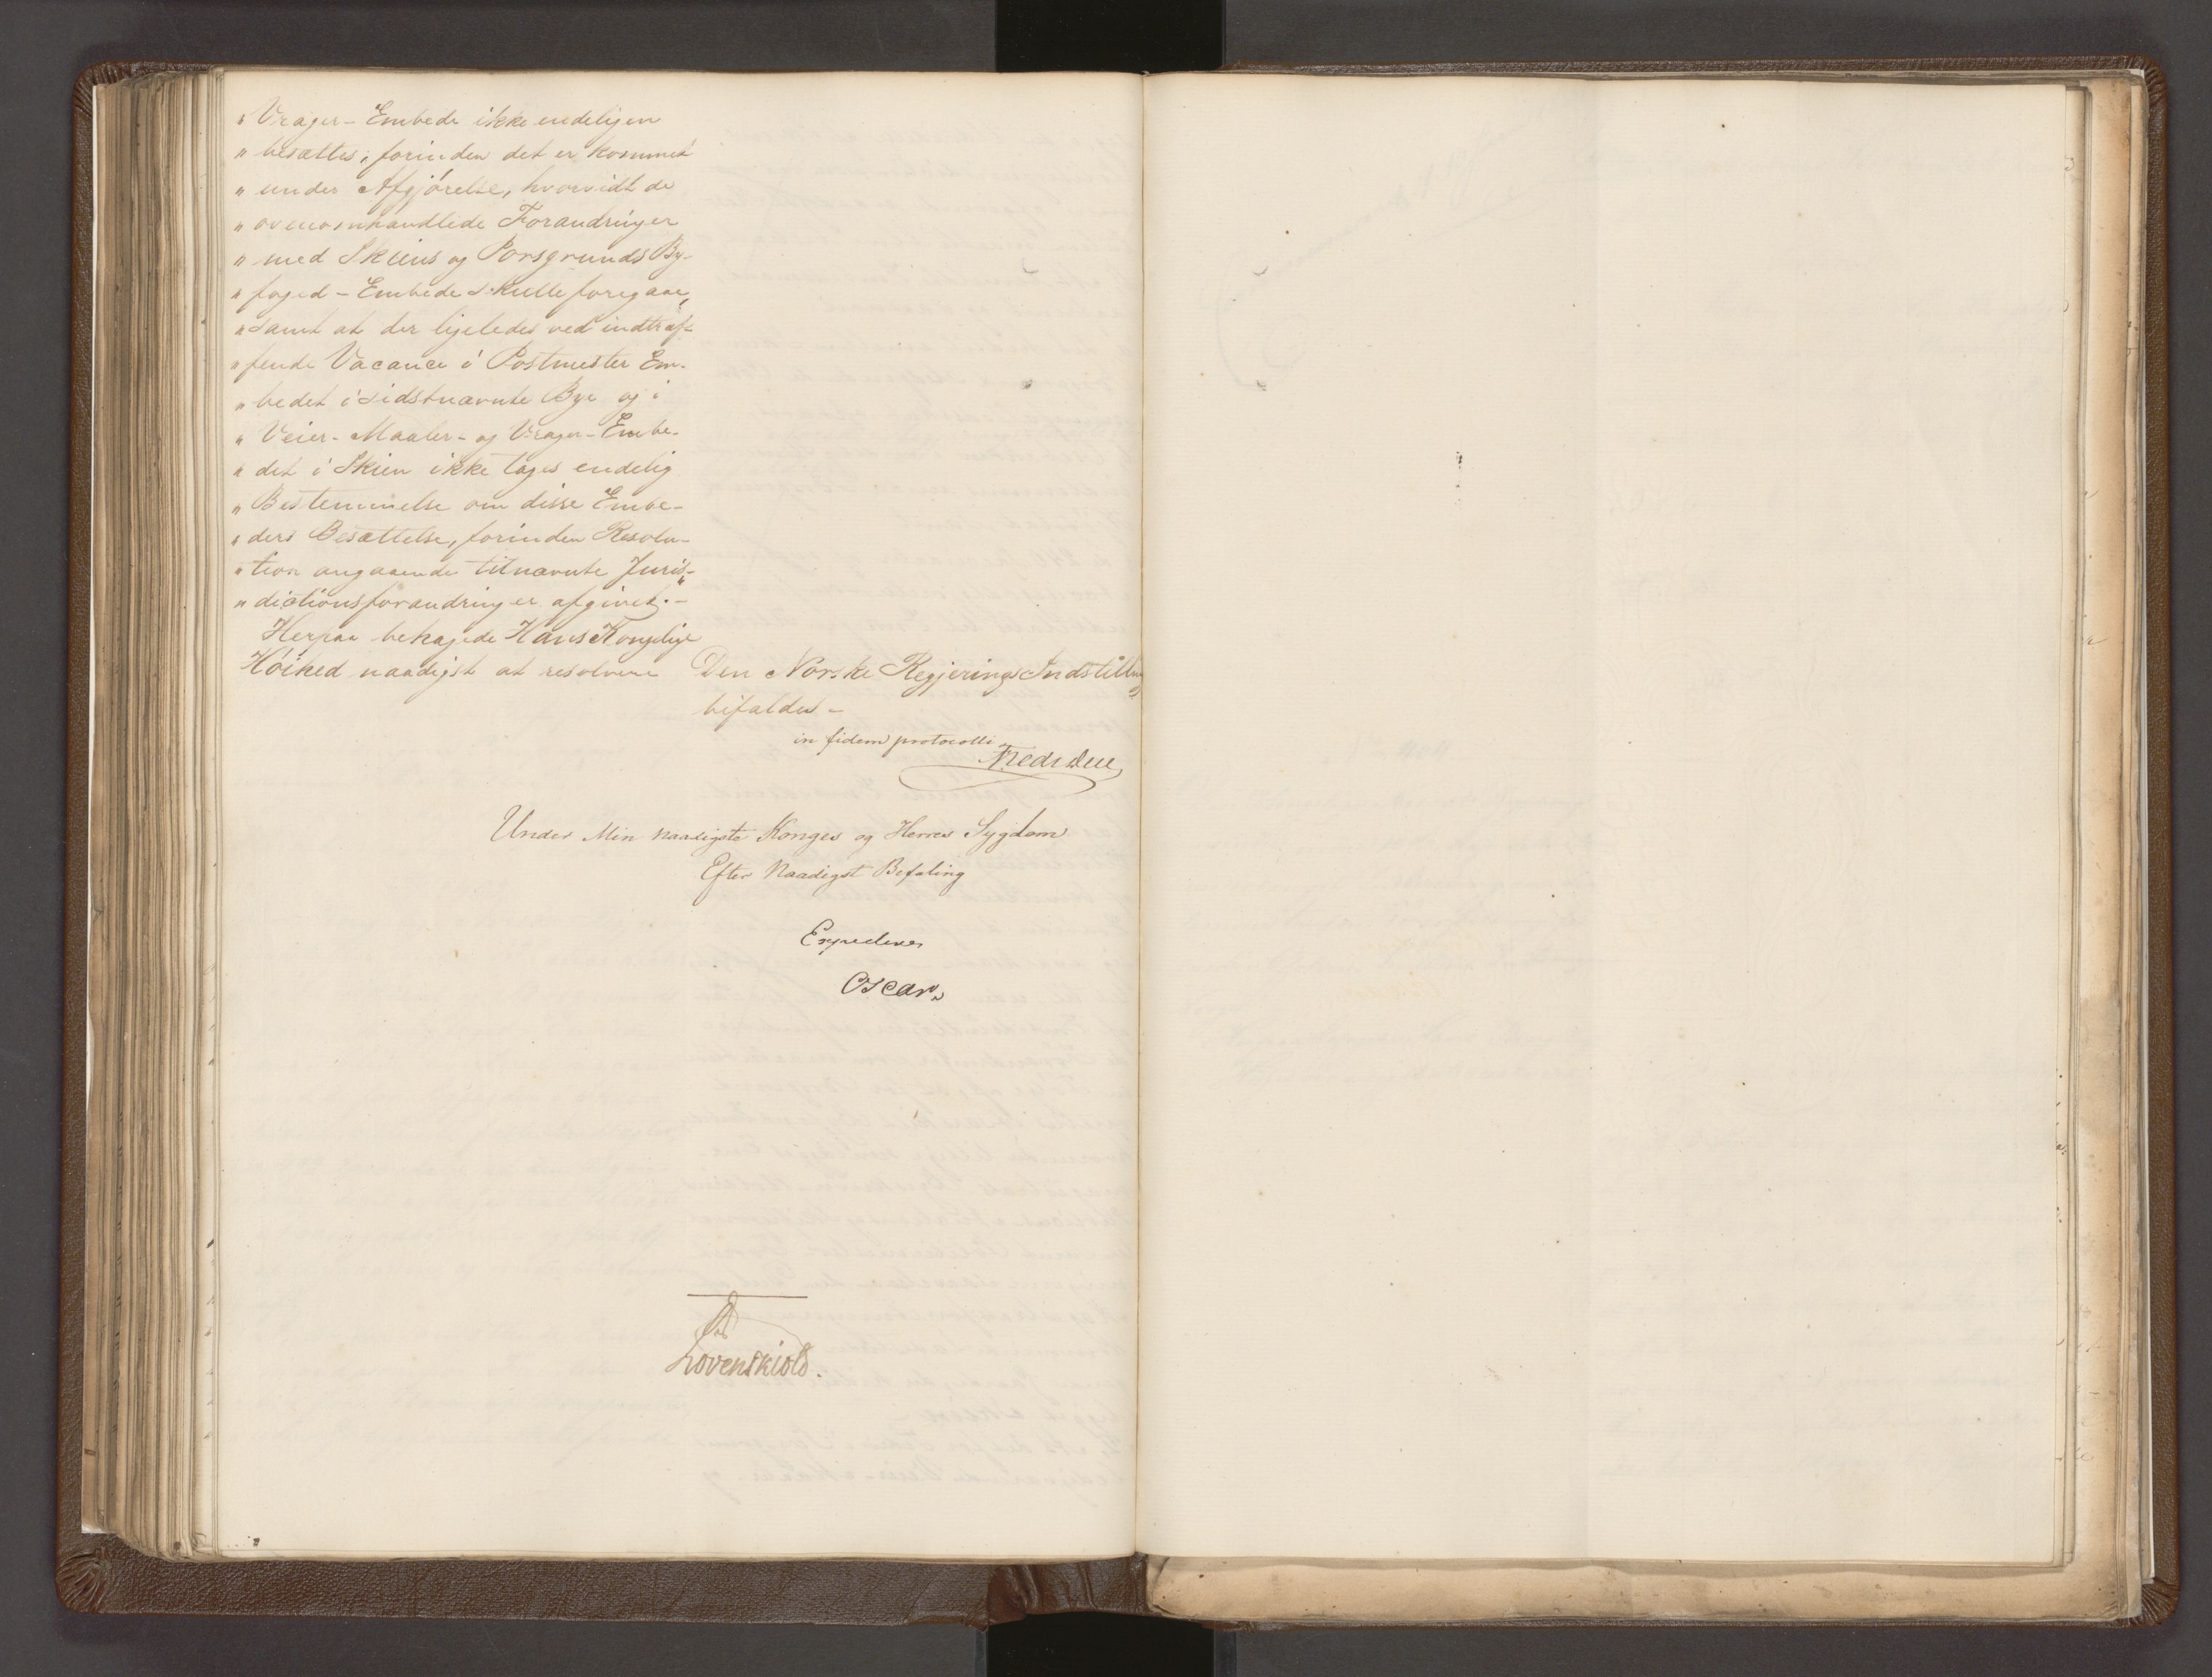 „ Vrager-Embede ikke endeligen
„ besættes, forinden det er kommet
„ under Afgjørelse, hvorvidt de
„ ovenomhandlede Forandringer
„ med Skiens og Porsgrunds By-
„ foged-Embede skulle foregaae,
„ samt at der ligeledes ved indtræf-
„ fende Vacance i Postmester Em-
„ bedet i sidstnævnte Bye og i
„ Veier- Maaler- og Vrager-Embe-
„ det i Skien ikke tages endelig
„ Bestemmelse om disse Embe-
„ ders Besættelse, forinden Resolu-
„ tion angaaende titnævnte Juris-
„ dictionsforandringer afgivet.-
Herpaa behagede Hans Kongelige
Høihed naadigst at resolvere
Den Norske Regjerings Indstilling
bifaldes-
in fidem protocolli
Under Min Naadigste Konges og Herres Sygdom
Efter Naadigst Befaling
Oscar
Løvenskiold.